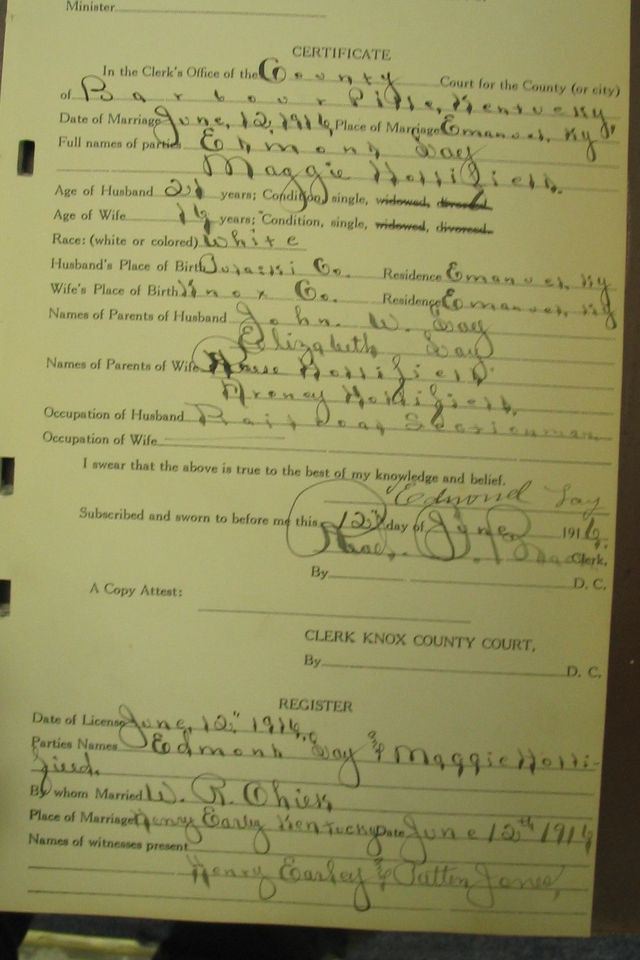 Minister
CERTIFICATE
In the Clerk's Office of the County Court for the County (or city)
of Barbourville, Kentucky.
Date of Marriage June, 12, 1916, Place of Marriage Emanuel, Ky
Full names of parties Edmond Lay
Maggie Hollifield.
Age of Husband 21 years; Condition, single, widowed, divorced.
Age of Wife years; Condition, single, widowed, divorced.
Race: (white or colored) White
Husband's Place of Birth Pulaski Co. Residence Emanuel, Ky
Wife's Place of Birth Knox Co. Residence Emanuel, Ky
Names of Parents of Husband John. W. Lay
Elizabeth Lay
Names of Parents of Wife Hollifield
Hollifield,
Occupation of Husband Railroad Sectionman
Occupation of Wife
I swear that the above is true to the best of my knowledge and belief.
Edmond Lay
Subscribed and sworn to before me this 12" day of June, 1916.
Clerk.
By D. C.
A Copy Attest:
CLERK KNOX COUNTY COURT.
By D. C.
REGISTER
Date of License June, 12" 1916,
Parties Names Edmond Lay & Maggie Holli-
field.
By whom Married W. R.
Place of Marriage Henry Earley Kentucky Date June 12th 1916
Names of witnesses present
Henry Earley & Patten Jones,